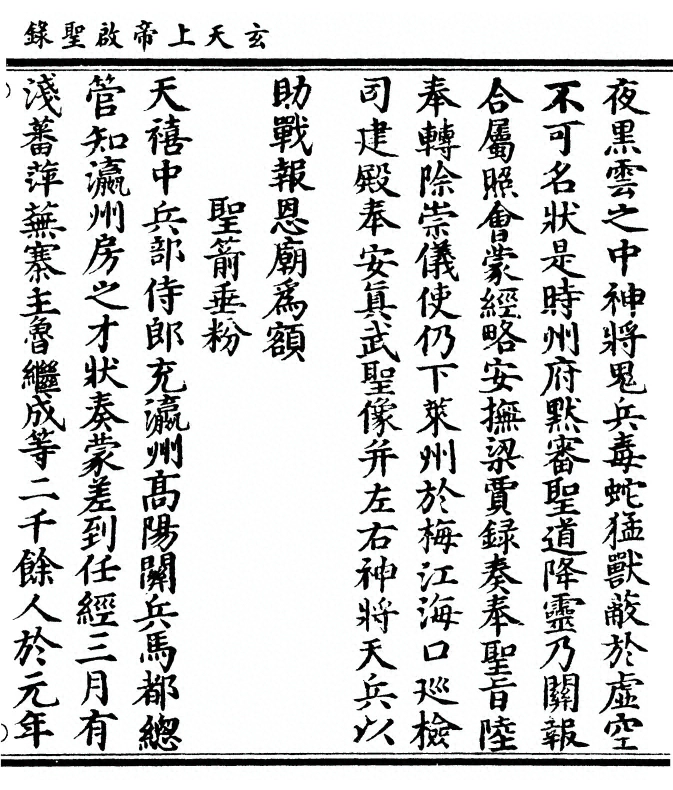 玄天上帝啟聖錄
夜黑雲之中神將鬼兵毒蛇猛獸蔽於虛空
不可名狀是時州府默審聖道降靈乃關報
合屬照會蒙經略安撫梁賈録奏奉聖旨陸
奉轉除崇儀使仍下萊州於梅江海口廵檢
司建殿奉安真武聖像并左右神將天兵以
助戰報恩廟爲額
聖箭垂粉
天禧中兵部侍郎充瀛州高陽關兵馬都緫
管知瀛州房之才狀奏蒙差到任經三月有
淺蕃萍蕪寨主魯繼成等二千餘人於元年